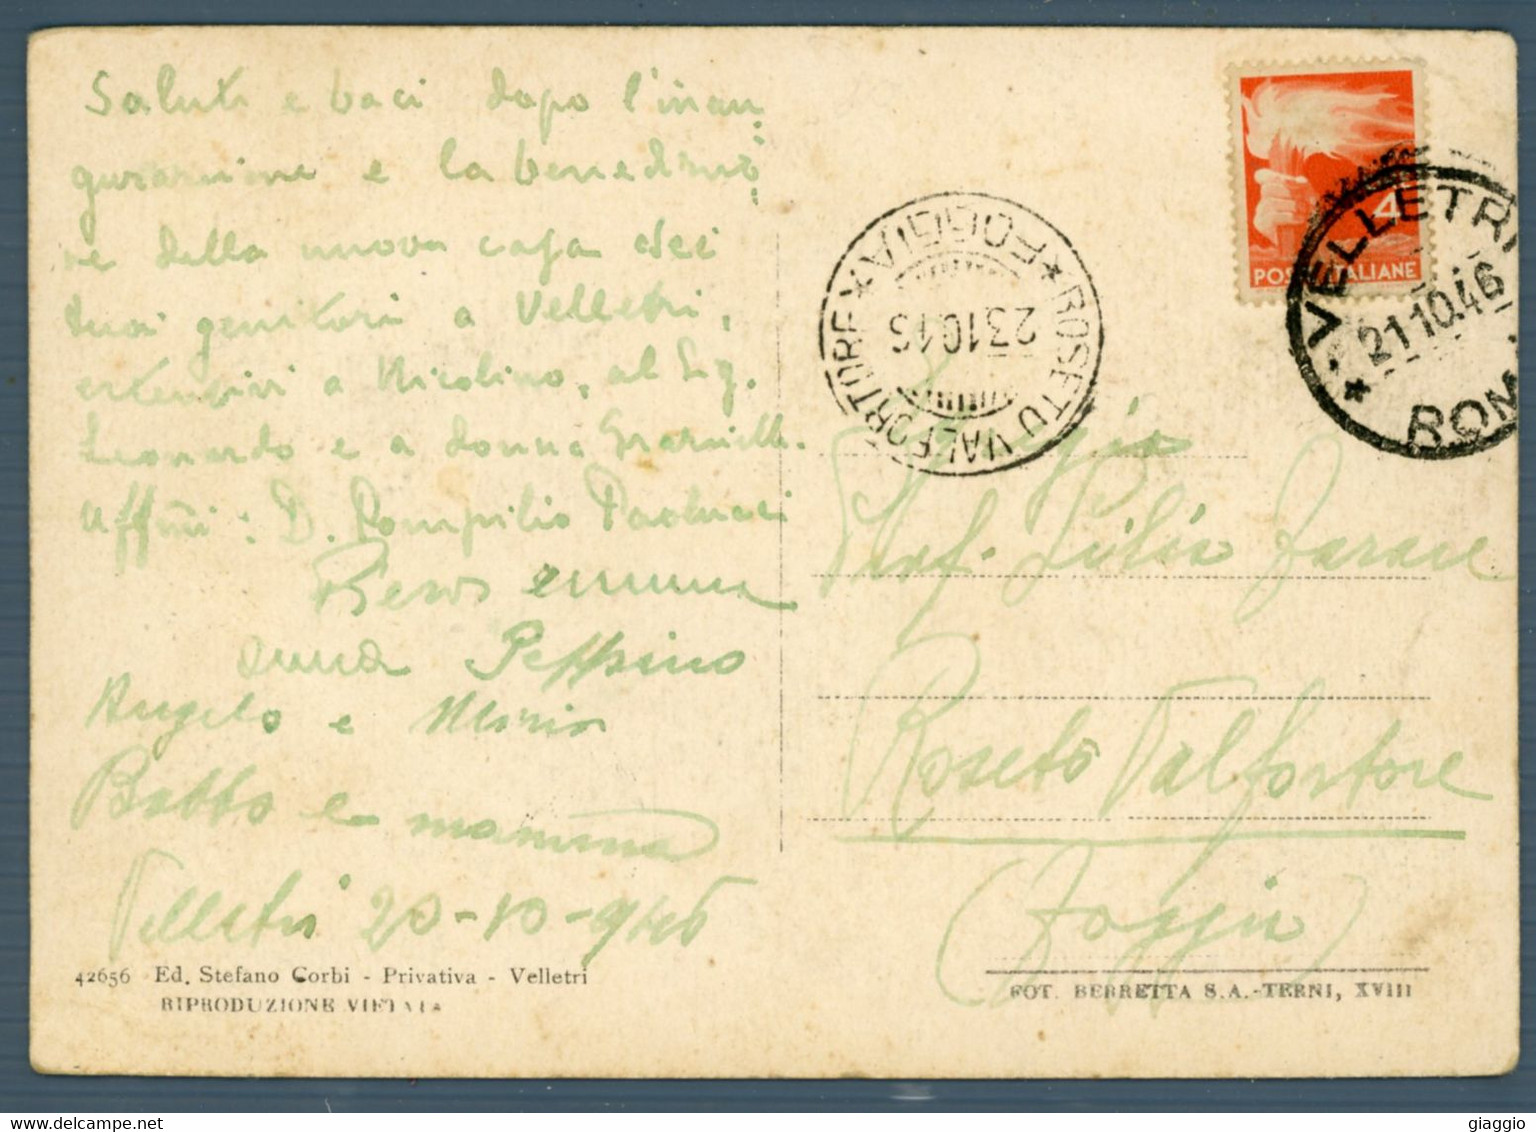 Saluti e baci dopo l'inau=
gurazione e la benedizio=
ne della nuova casa dei
tuoi genitori a Velletri,
estensivi a Nicolino, al Sig.
Leonardo e a donna Graziella.
Affmi: D. Pompilio Paolucci
emma
anna Peppino
Angelo e Maria
Babbo e mamma
Velletri 20-10-946
42656 Ed. Stefano Corbi - Privativa - Velletri
RIPRODUZIONE VIETATA
4
POSTE ITALIANE
VELLETRI
21.10.46
ROMA
ROSETO VALFORTORE
FOGGIA
23.10.46
Prof. Lilia
Roseto Valfortore
(Foggia)
FOT. BERRETTA S.A.-TERNI, XVIII
giaggio